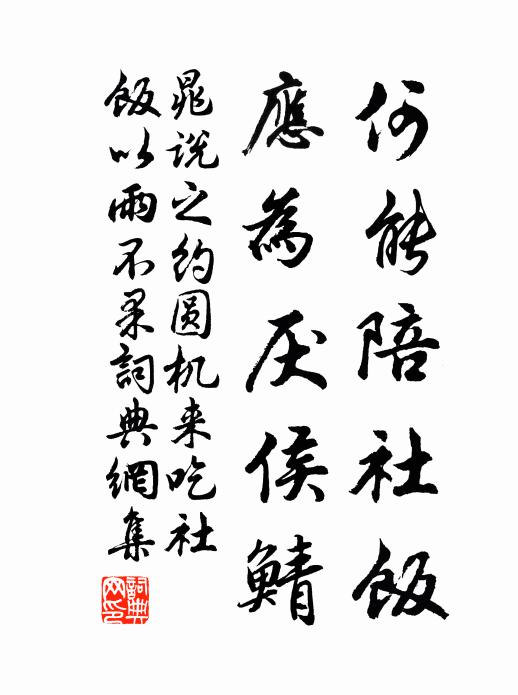 何能陪社飯
應為厌侯鯖
晁说之约圆机来吃社
飯以雨不果詞典網集
詞典網印